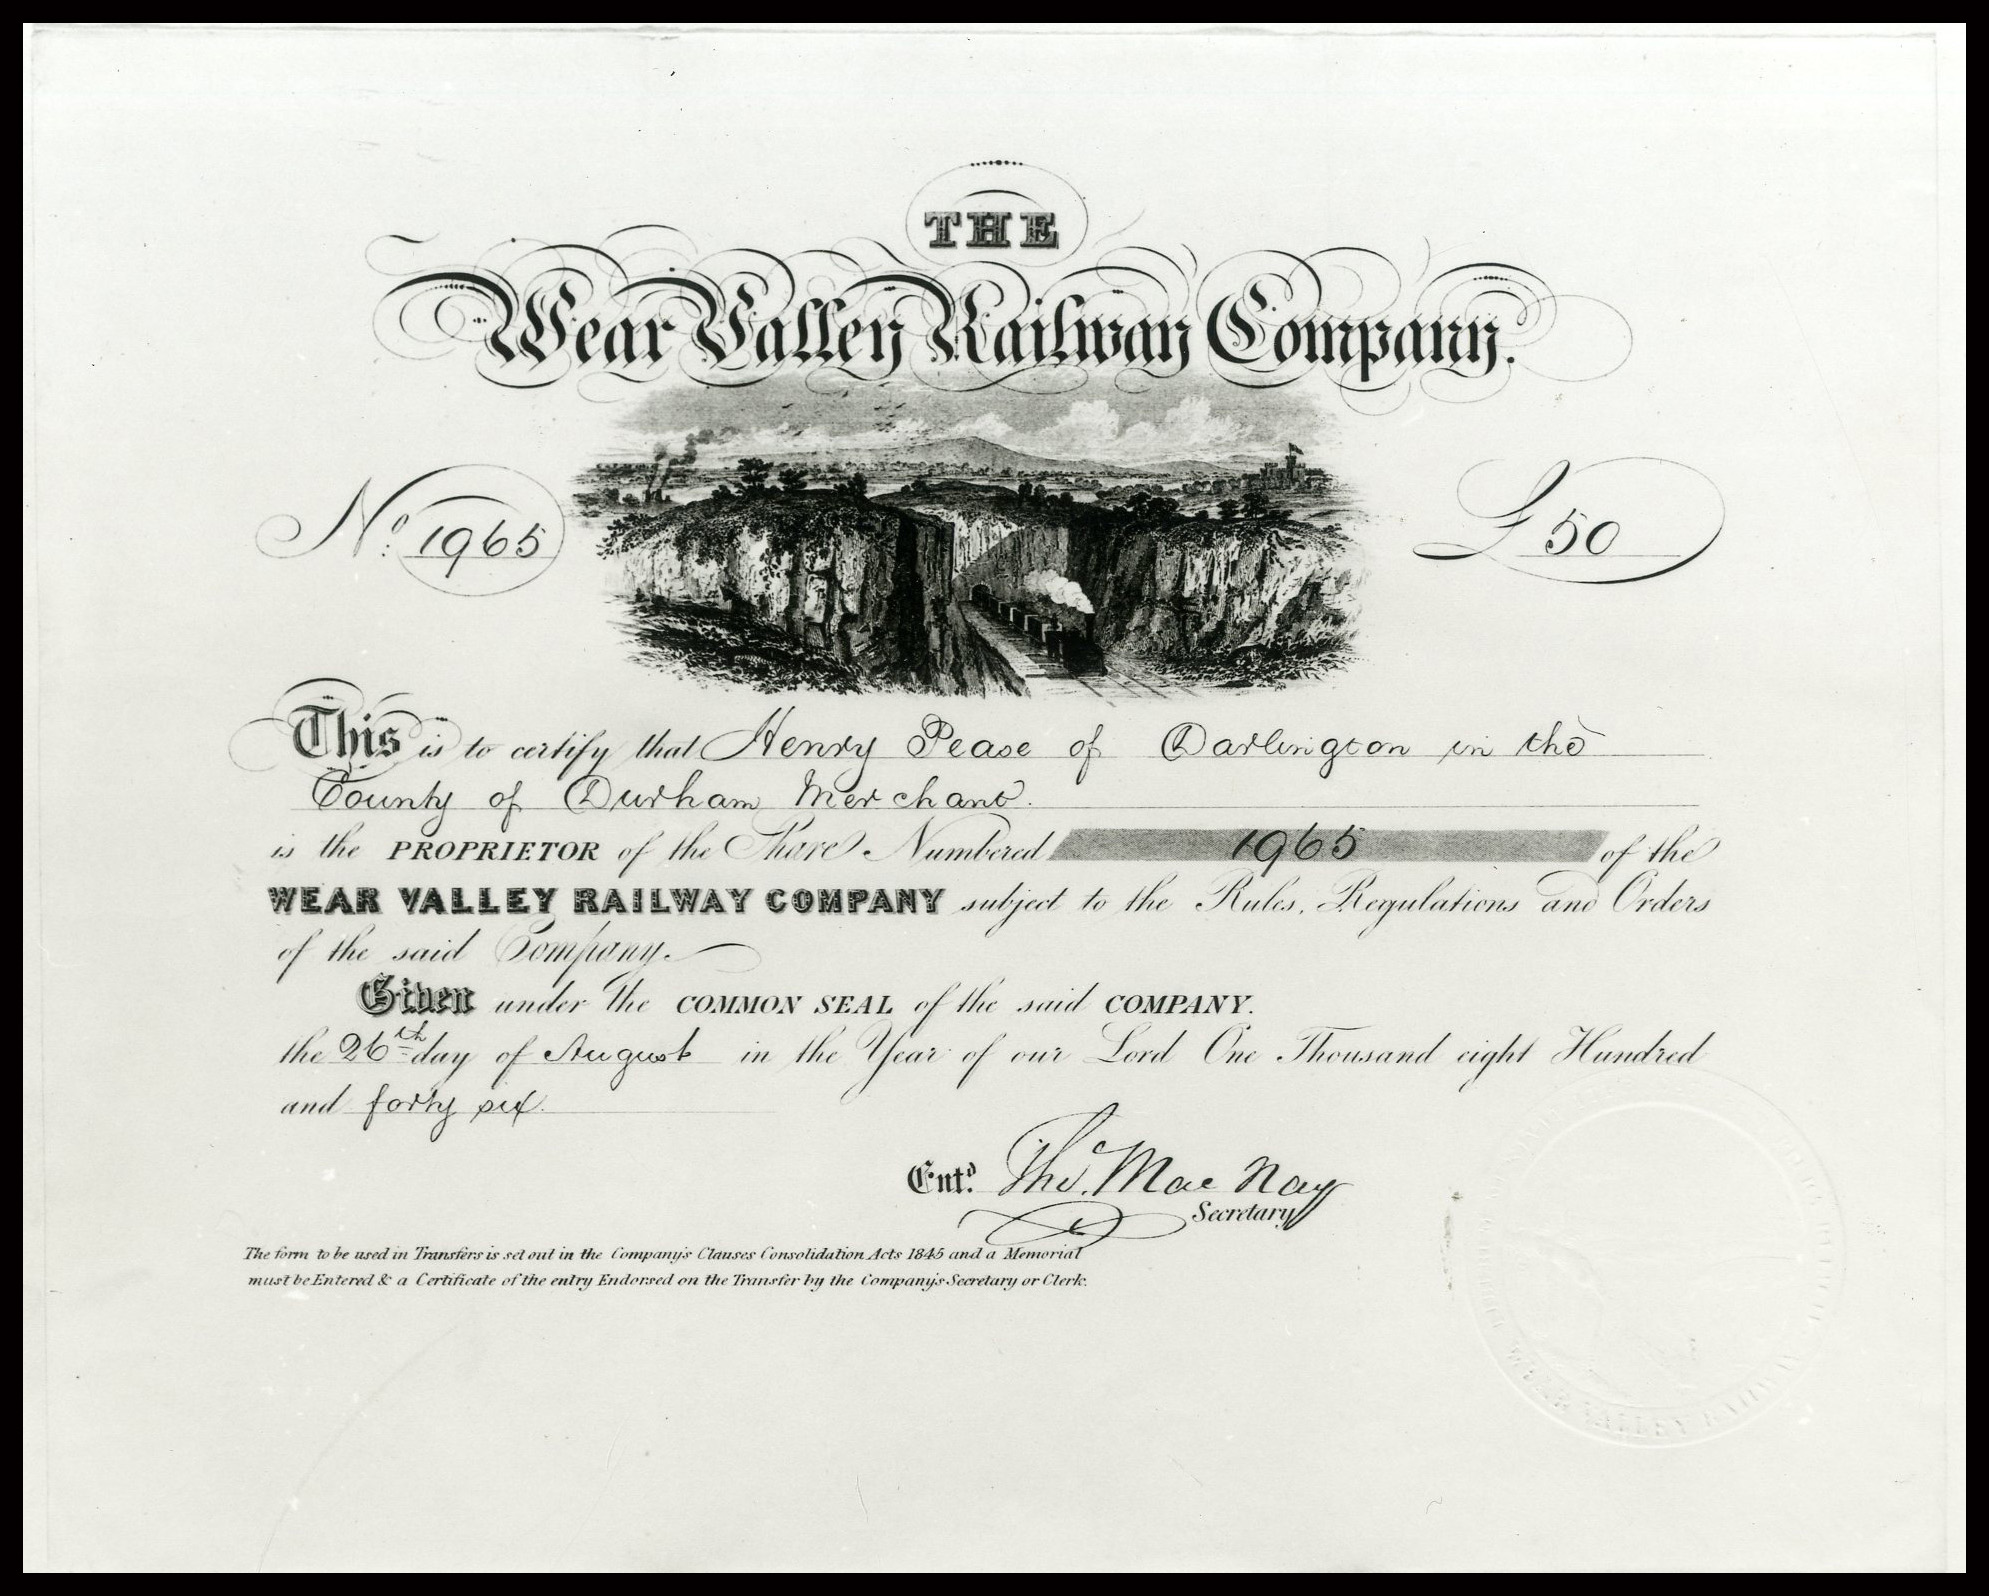 THE
Wear Valley Railway Company.
No. 1965
£50
This is to certify that Henry Pease of Darlington in the
County of Durham Merchant.
is the PROPRIETOR of the Share Numbered 1965 of the
WEAR VALLEY RAILWAY COMPANY subject to the Rules, Regulations and Orders
of the said Company.
Given under the COMMON SEAL of the said COMPANY.
the 26th day of August in the Year of our Lord One Thousand eight Hundred
and forty six.
Entd. Tho. MacNay
Secretary
The form to be used in Transfers is set out in the Company's Clauses Consolidation Acts 1845 and a Memorial
must be Entered & a Certificate of the entry Endorsed on the Transfer by the Company's Secretary or Clerk.
WEAR VALLEY RAILWAY